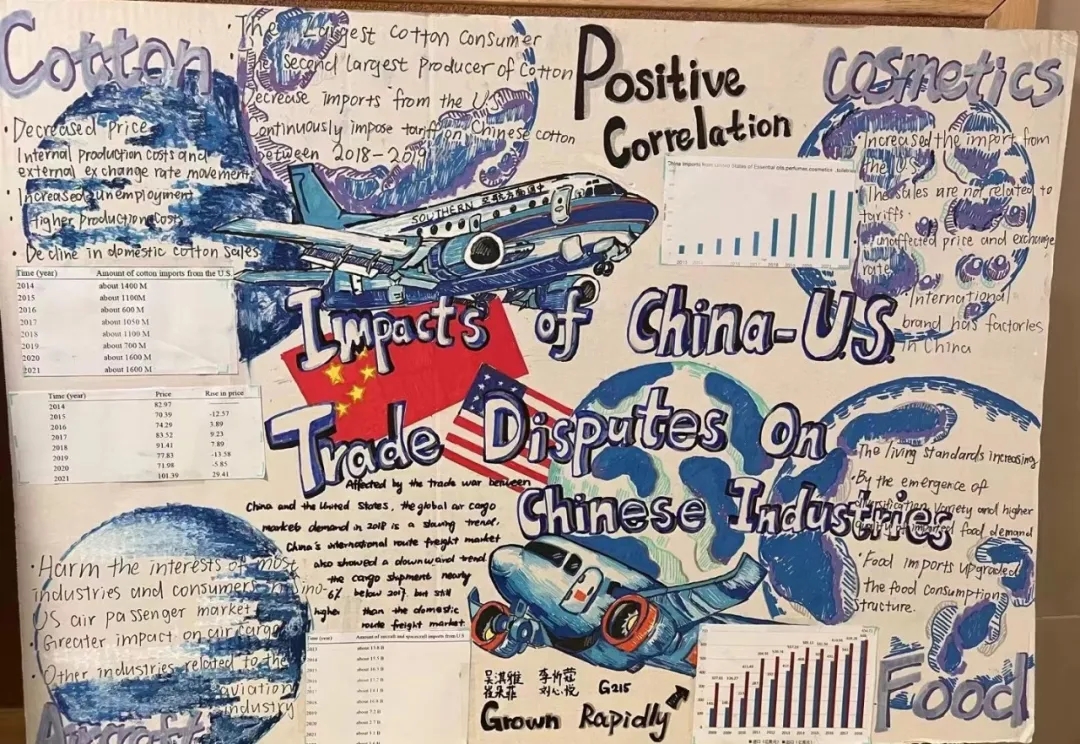 Cotton
The Largest Cotton Consumer
The second largest producer of Cotton
Decrease imports from the U.S.
Continuously impose tariff on Chinese cotton
between 2018-2019
Positive
Correlation
Cosmetics
· Decreased Price
Internal production costs and
external exchange rate movements
· Increased unemployment
· Higher production costs
· Decline in domestic cotton sales
Time (year) Amount of cotton imports from the U.S.
2014 about 1400 M
2015 about 1100M
2016 about 600 M
2017 about 1050 M
2018 about 1100 M
2019 about 700 M
2020 about 1600 M
2021 about 1600 M
Time (year) Price Rise in price
2014 82.97
2015 70.39 -12.57
2016 74.29 3.89
2017 83.52 9.23
2018 91.41 7.89
2019 77.83 -13.58
2020 71.98 -5.85
2021 101.39 29.41
SOUTHERN
· Increased the import from
the U.S.
· The sales are not related to
tariffs.
· unaffected price and exchange
rate
· International
brand has factories
in China
Impacts of China-U.S.
Trade Disputes On
Chinese Industries
Affected by the trade war between
China and the United States, the global air cargo
market demand in 2018 is a slowing trend.
China's international route freight market
also showed a downward trend
the cargo shipment nearly
6% below 2017. but still
higher than the domestic
route freight market.
· The living standards increasing
· By the emergence of
diversification variety and higher
quality of imported food demand
· Food imports upgraded
the food consumption
structure.
· Harm the interests of most
industries and consumers in
US air passenger market
· Greater impact on air cargo
· Other industries related to the
aviation
industry
Aircraft
Time (year) Amount of aircraft and spacecraft imports from U.S
吴淇雅
刘心悦
G215
Grown Rapidly
Food